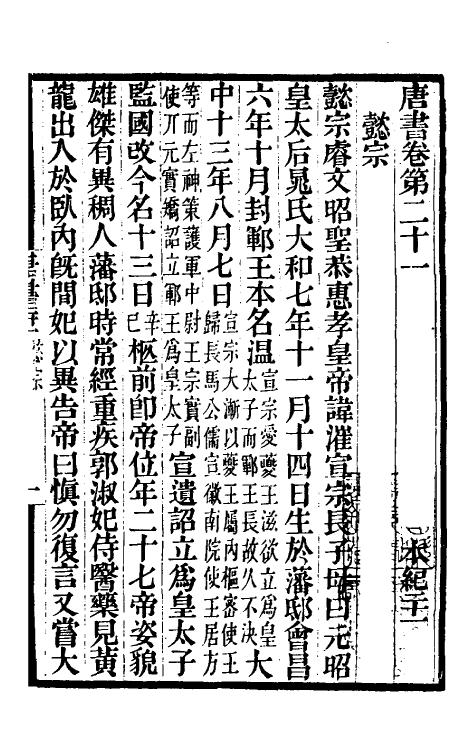 唐書卷第二十一 本紀二十一
懿宗
懿宗睿文昭聖恭惠孝皇帝諱漼宣宗長子母曰元昭
皇太后晁氏大和七年十一月十四日生於藩邸會昌
六年十月封鄆王本名温宣宗愛夔王滋欲立爲皇太子而鄆王長故久不決大
中十三年八月七日宣宗大漸以夔王屬內樞密使王歸長馬公儒宣徽南院使王居方
等而左神策護軍中尉王宗實副使丌元實矯詔立鄆王爲皇太子宣遺詔立爲皇太子
監國改今名十三日辛巳柩前卽帝位年二十七帝姿貌
雄傑有異稠人藩邸時常經重疾郭淑妃侍醫藥見黃
龍出入於臥內旣間妃以異告帝曰愼勿復言又嘗大
懿宗 一